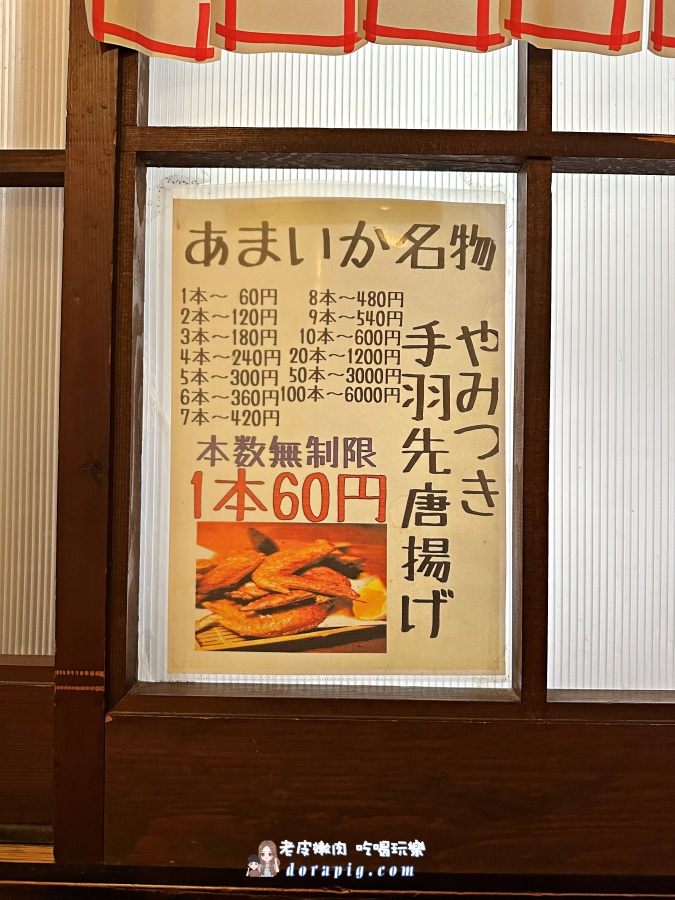 あまいか名物
やみつき
手羽先唐揚げ
1本〜 60円
2本〜120円
3本〜180円
4本〜240円
5本〜300円
6本〜360円
7本〜420円
8本〜480円
9本〜540円
10本〜600円
20本〜1200円
50本〜3000円
100本〜6000円
本数無制限
1本60円
老皮嫩肉 吃喝玩樂
dorapig.com